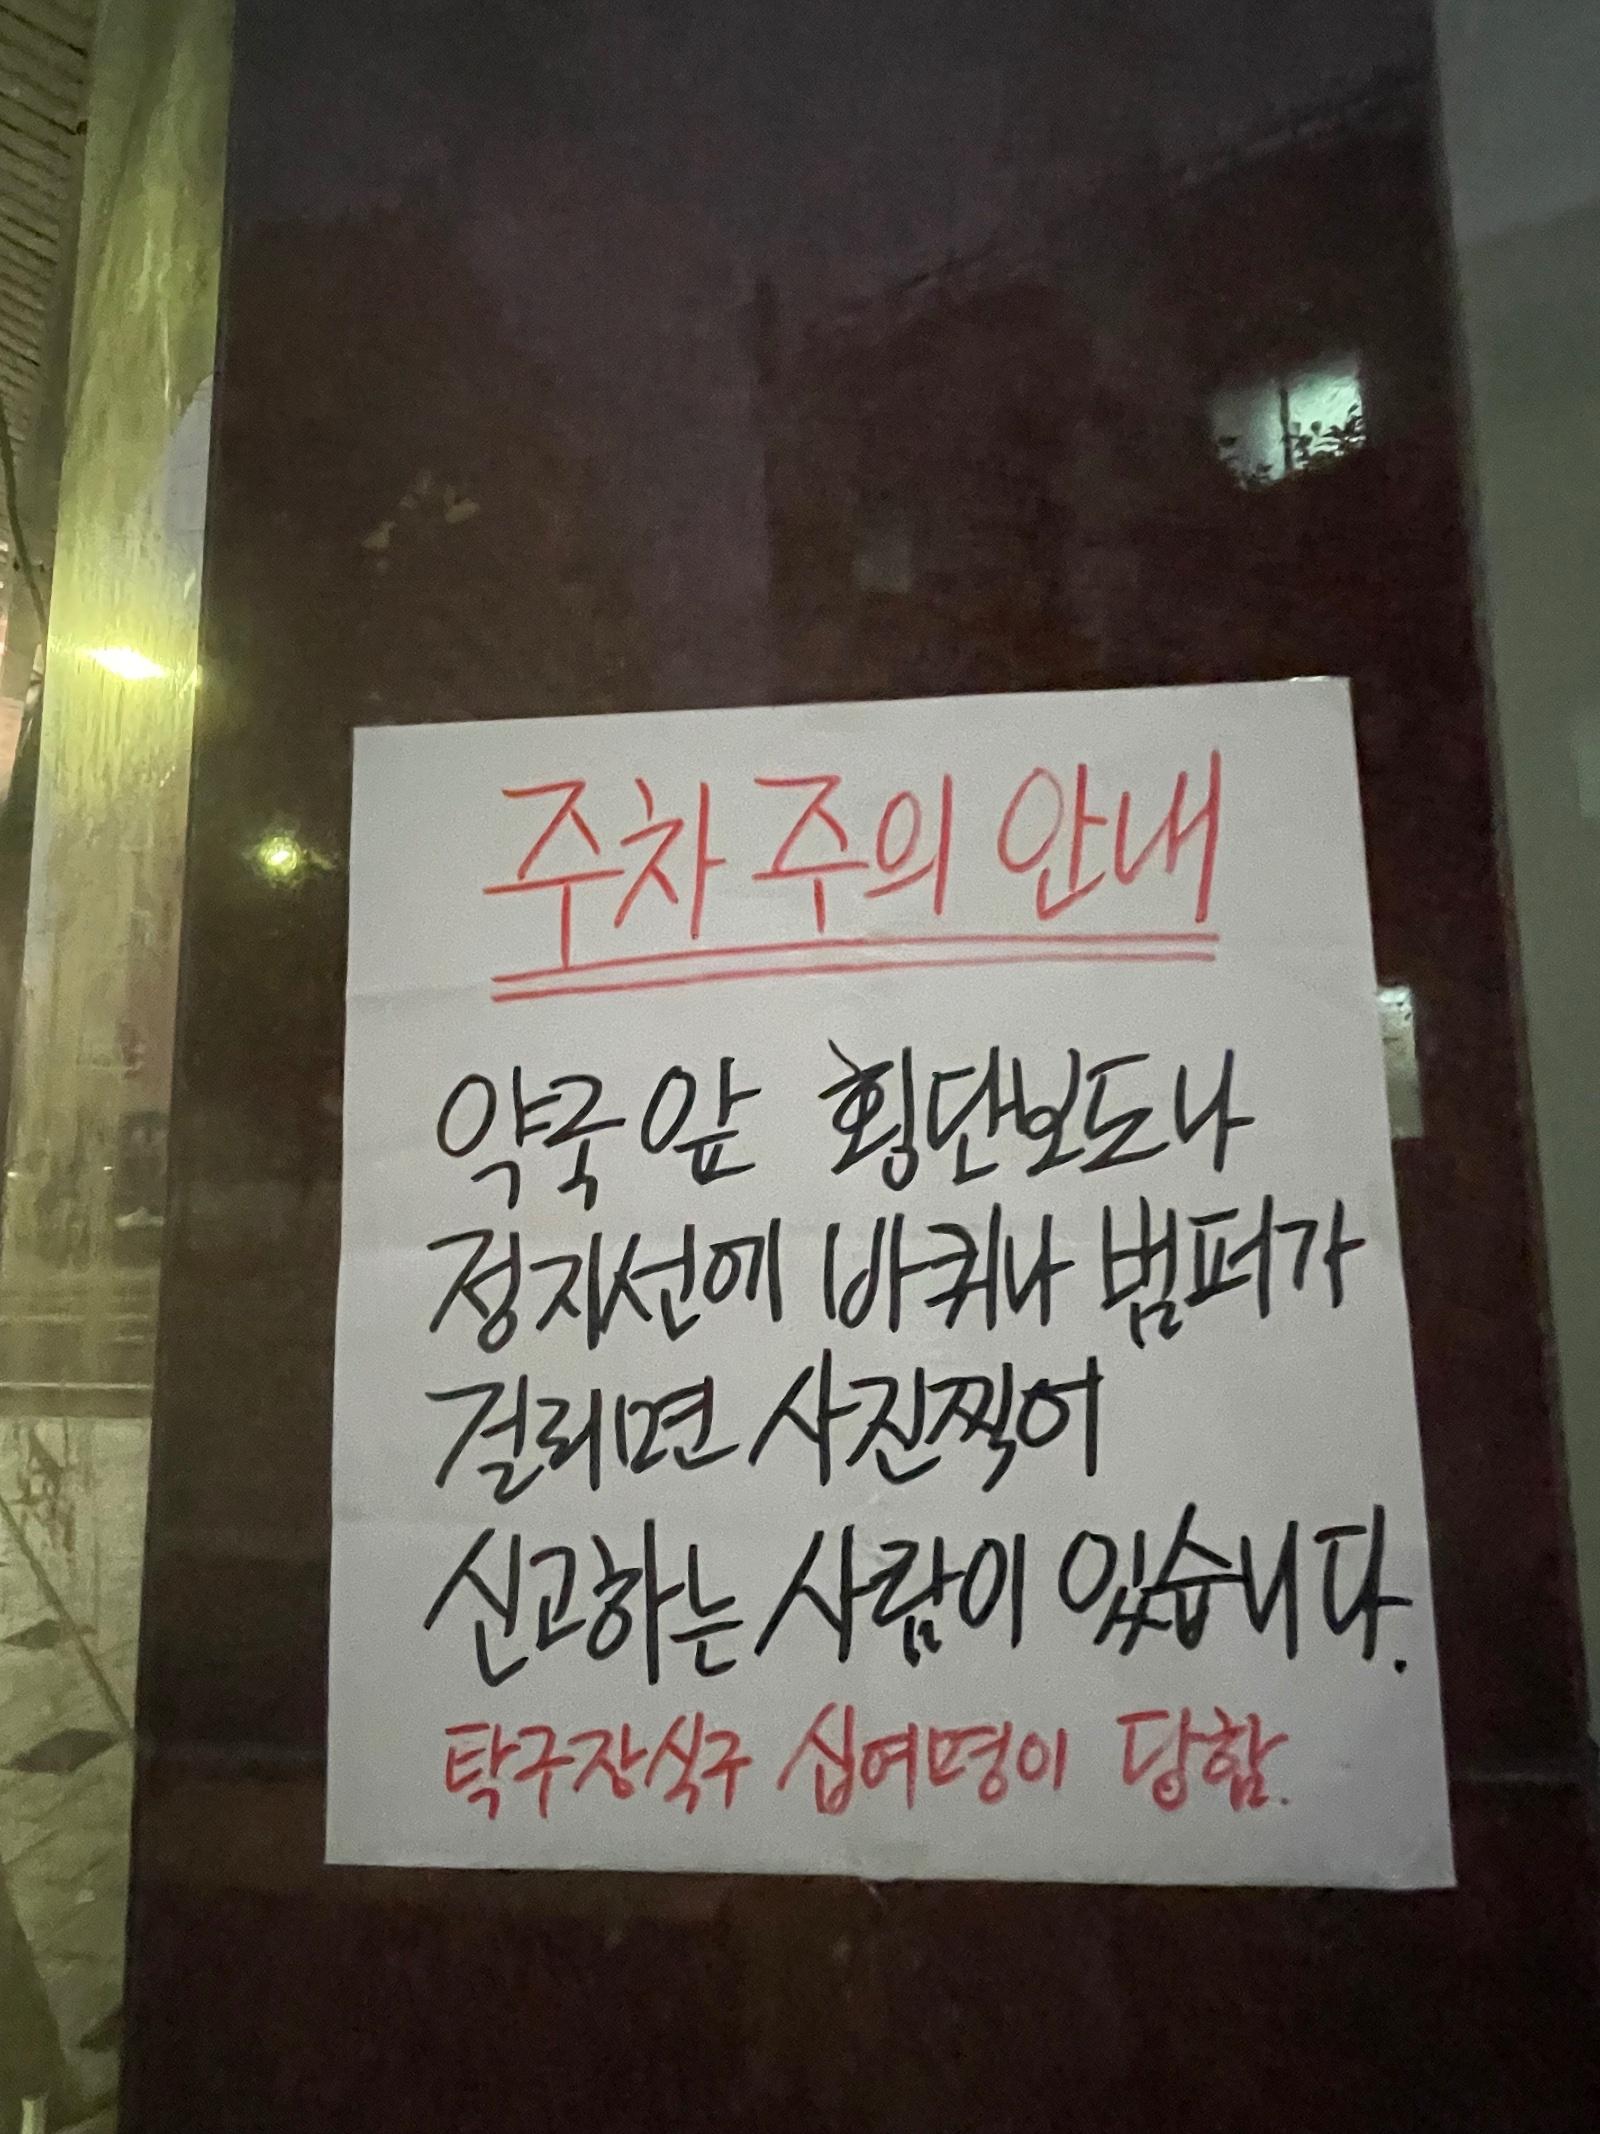 주차 주의 안내
약국 앞 횡단보도나
정지선에 바퀴나 범퍼가
걸리면 사진찍어
신고하는 사람이 있습니다.
탁구장식구 십여명이 당함.